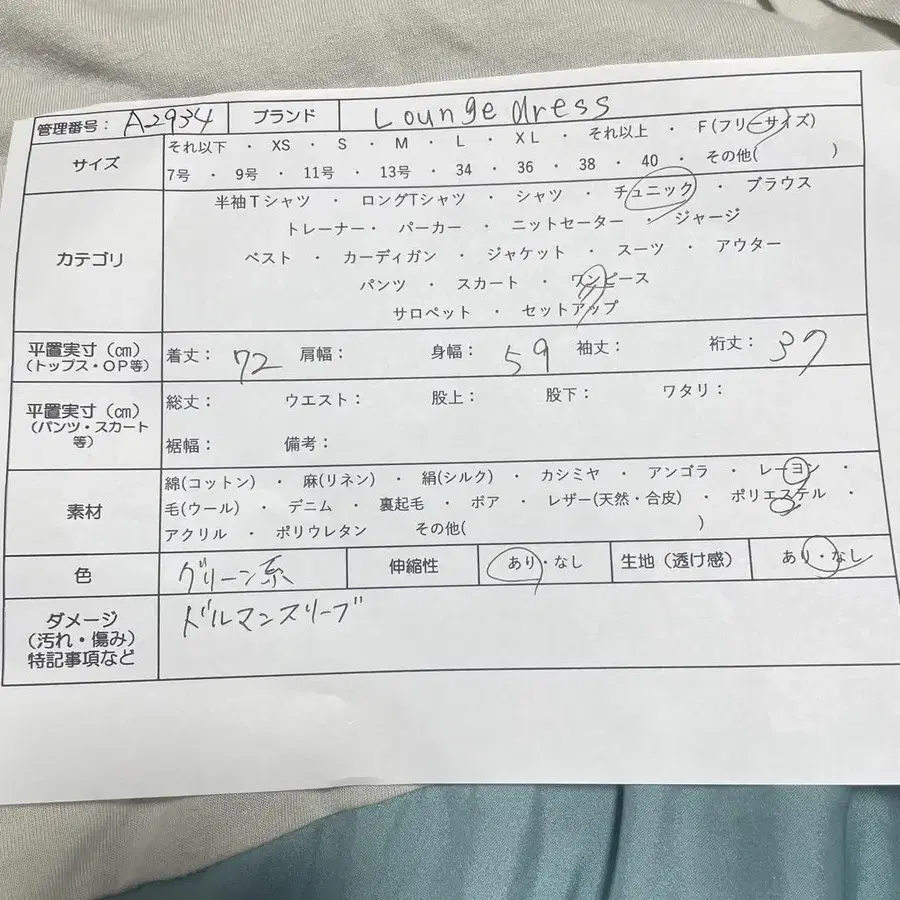 管理番号： A2934 ブランド Lounge dress
サイズ
それ以下 ・ XS ・ S ・ M ・ L ・ XL ・ それ以上 ・ F(フリーサイズ)
7号 ・ 9号 ・ 11号 ・ 13号 ・ 34 ・ 36 ・ 38 ・ 40 ・ その他( )
カテゴリ
半袖Tシャツ ・ ロングTシャツ ・ シャツ ・ チュニック ・ ブラウス
トレーナー・ パーカー ・ ニットセーター ・ ジャージ
ベスト ・ カーディガン ・ ジャケット ・ スーツ ・ アウター
パンツ ・ スカート ・ ワンピース
サロペット ・ セットアップ
平置実寸（㎝）
（トップス・OP等）
着丈： 72 肩幅： 身幅： 59 袖丈： 裄丈： 37
平置実寸（㎝）
（パンツ・スカート
等）
総丈： ウエスト： 股上： 股下： ワタリ：
裾幅： 備考：
素材
綿(コットン) ・ 麻(リネン) ・ 絹(シルク) ・ カシミヤ ・ アンゴラ ・ レーヨン ・
毛(ウール) ・ デニム ・ 裏起毛 ・ ボア ・ レザー(天然・合皮) ・ ポリエステル ・
アクリル ・ ポリウレタン その他( )
色 グリーン系 伸縮性 あり・なし 生地（透け感） あり・なし
ダメージ
（汚れ・傷み）
特記事項など
ドルマンスリーブ